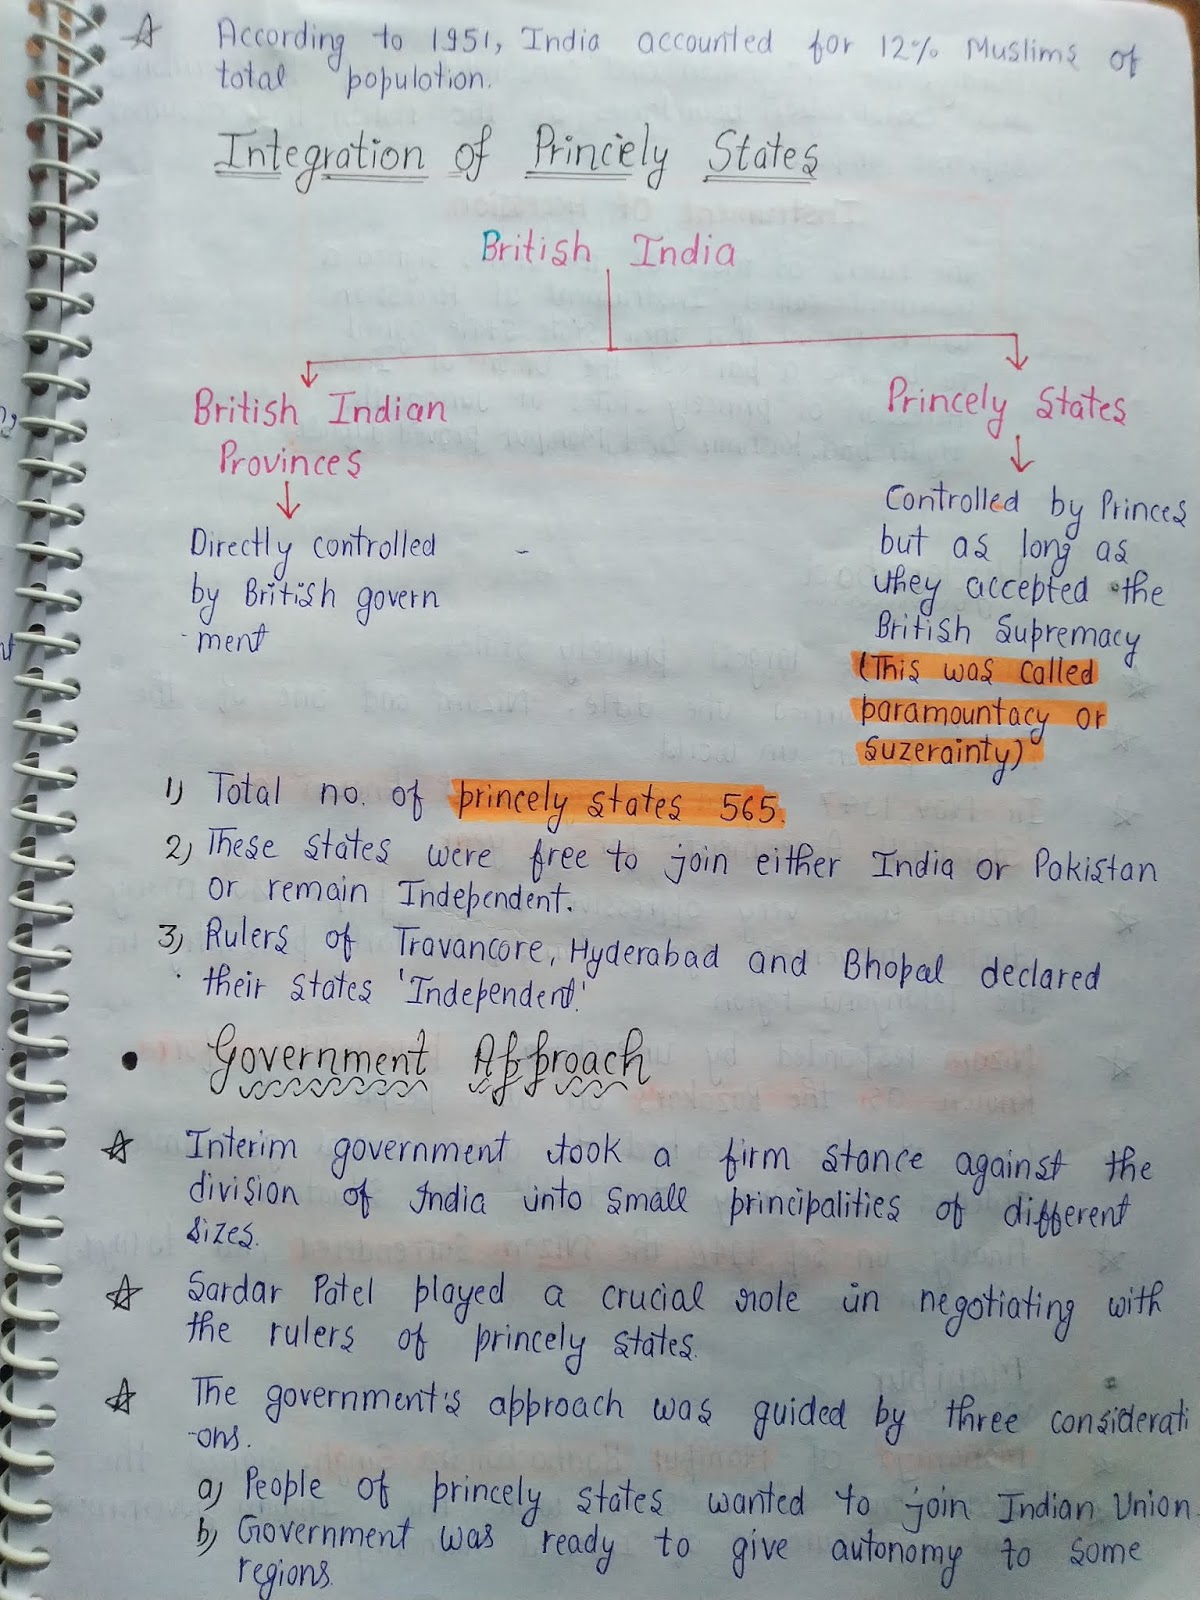 According to 1951, India accounted for 12% Muslims of
total population.
Integration of Princiely States
British India
British Indian
Provinces
Directly controlled
by British govern
-ment
Princely States
Controlled by Princes
but as long as
they accepted the
British Supremacy
(This was called
paramountacy or
Suzerainty)
1) Total no. of princely states 565.
2) These states were free to join either India or Pakistan
or remain Independent.
3) Rulers of Travancore, Hyderabad and Bhopal declared
their states 'Independent.'
• Government Approach
Interim government took a firm stance against the
division of India into small principalities of different
sizes.
Sardar Patel played a crucial role in negotiating with
the rulers of princely states.
The government's approach was guided by three considerati
-ons.
a) People of princely states wanted to join Indian Union
b) Government was ready to give autonomy to some
regions.